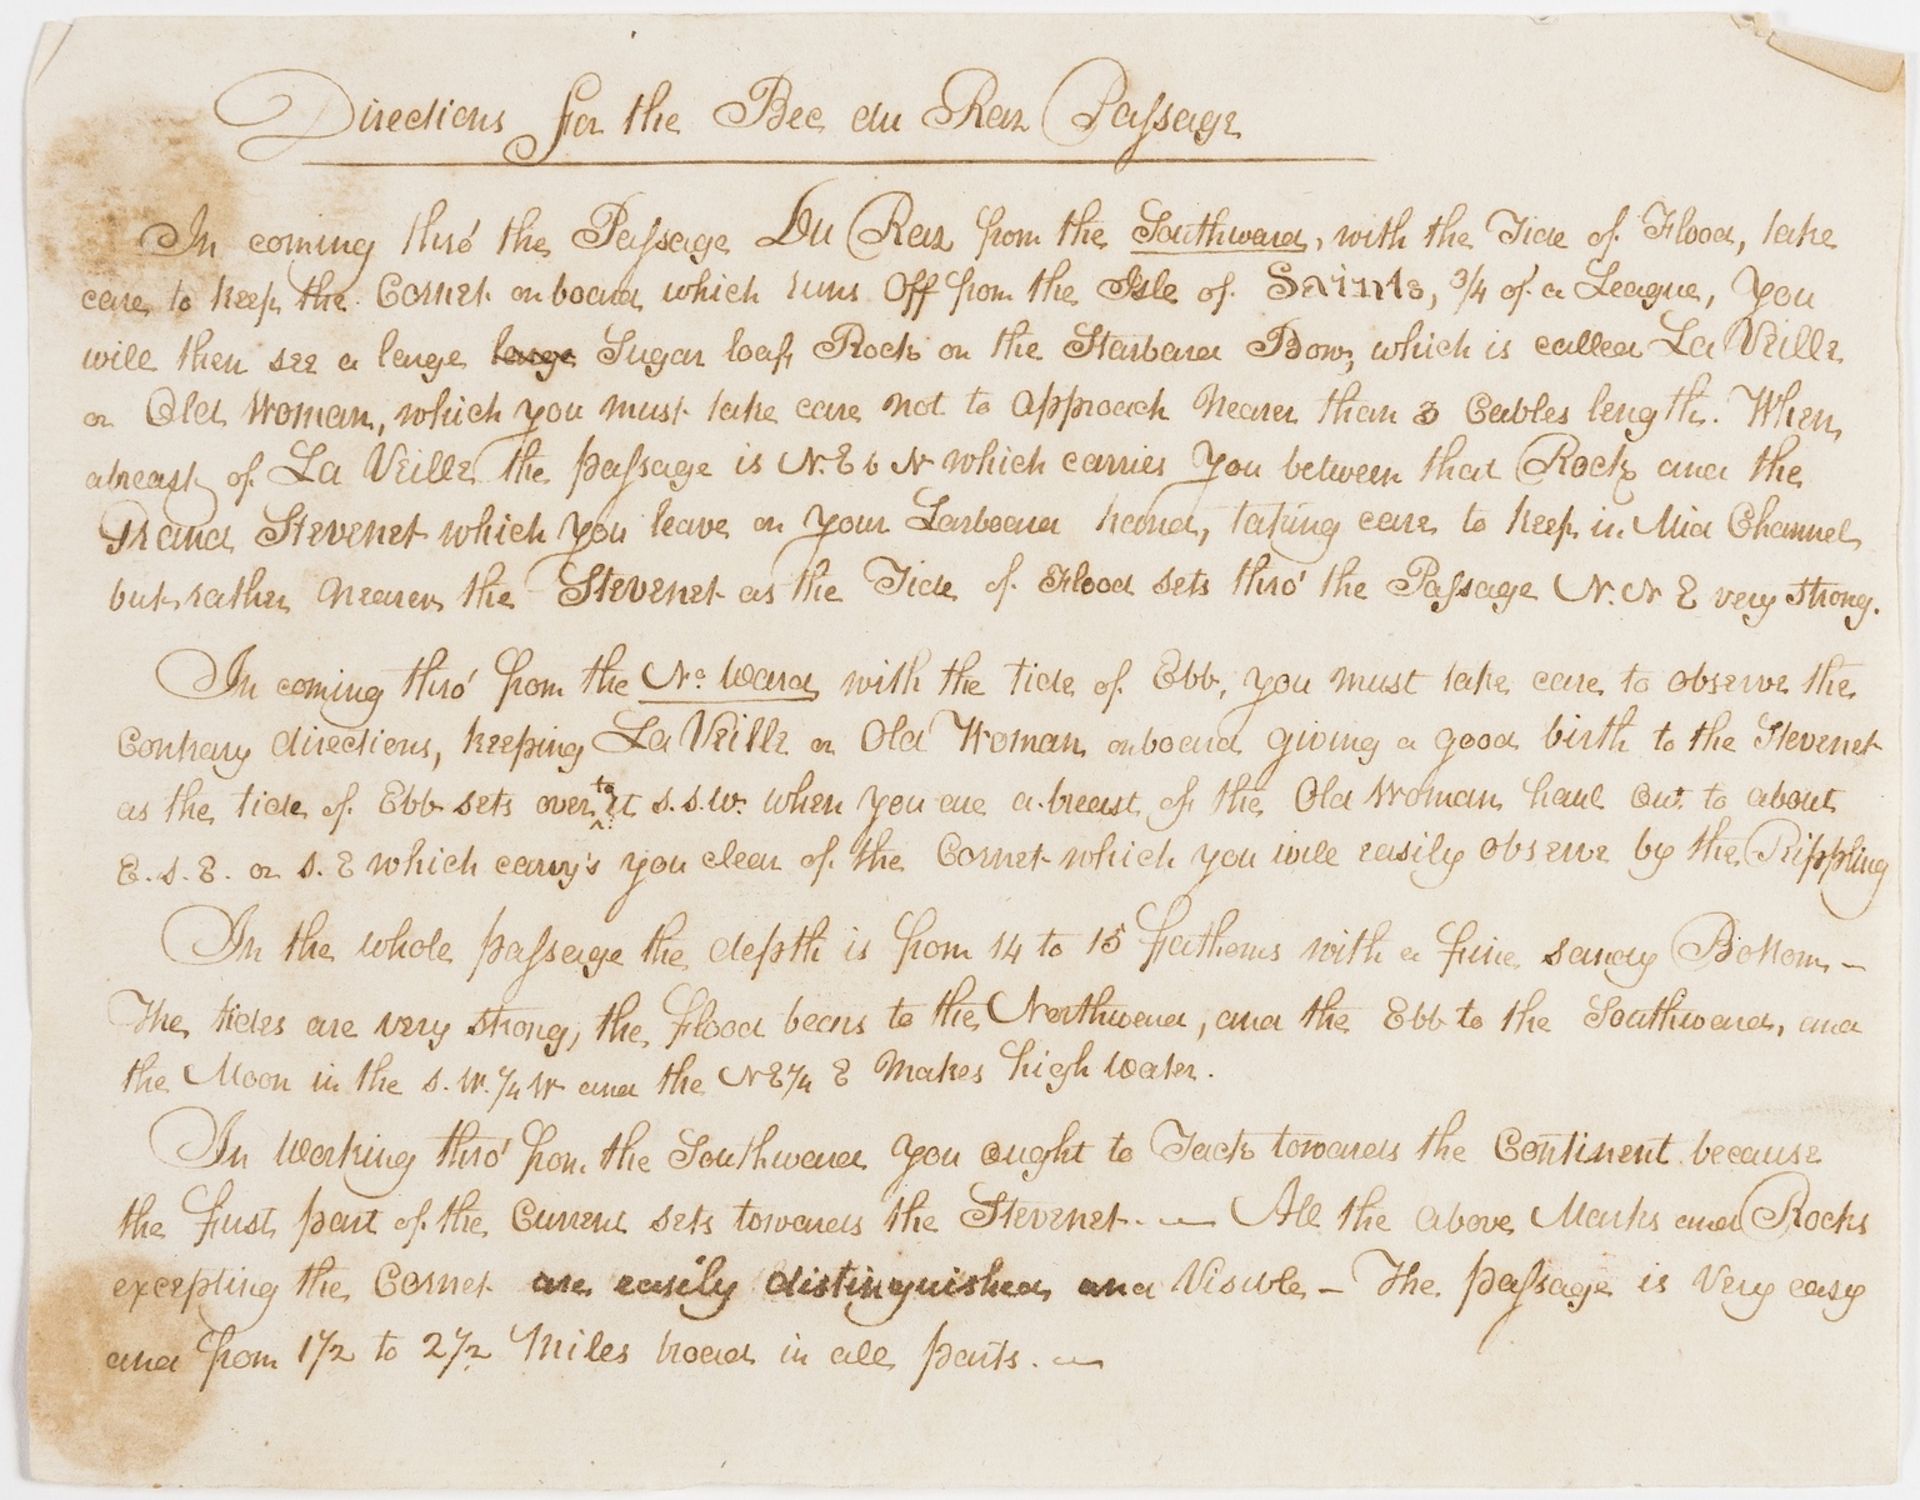 Directions for the Bec du Raz Passage
In coming thro' the Passage Du Raz from the Southward, with the Tide of Flood, take
care to keep the Cornet onboard which runs Off from the Isle of Saints, 3/4 of a League, you
will then see a large large Sugar loaf Rock on the Starbard Bow, which is called La Veille
or Old Woman, which you must take care not to approach Nearer than 3 Cables length. When
abreast of La Veille the passage is N.E b N which carries you between that Rock and the
Grand Stevenet which you leave on your Larboard hand, taking care to keep in Mid Channel
but rather Nearer the Stevenet as the Tide of Flood sets thro' the Passage N.N E very strong.
In coming thro' from the No. Ward with the tide of Ebb, you must take care to observe the
Contrary directions, keeping La Veille or Old Woman onboard giving a good birth to the Stevenet
as the tide of Ebb sets over to it S.S.W. When you are a-breast of the Old Woman haul Out to about
E.S.E. or S.E which carry's you clear of the Cornet which you will easily observe by the Rippling
In the whole passage the depth is from 14 to 15 fathoms with a fine sandy Bottom –
The tides are very strong, the flood bears to the Northward, and the Ebb to the Southward, and
the Moon in the S.W. 1/4 W and the N E 1/4 E Makes high Water.
In Working thro' from the Southward you ought to Tack towards the Continent because
the first part of the Current sets towards the Stevenet. — All the above Marks and Rocks
excepting the Cornet are easily distinguished and Visible – The passage is Very easy
and from 1 1/2 to 2 1/2 Miles broad in all parts. —